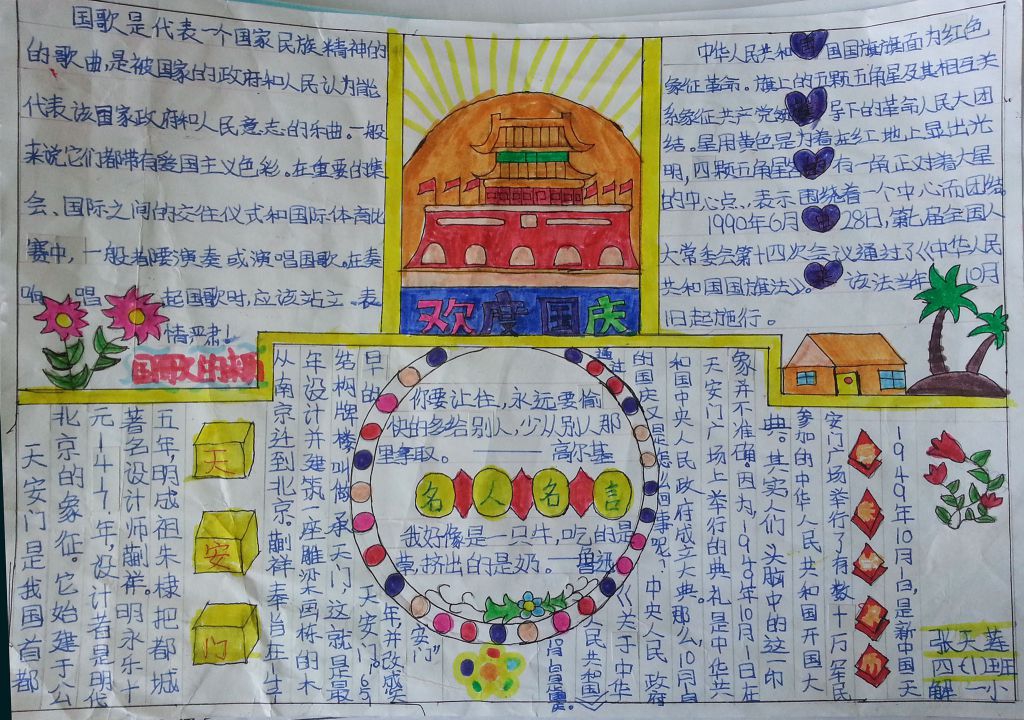 国歌是代表一个国家民族精神的
的歌曲,是被国家的政府和人民认为能
代表该国家政府和人民意志的乐曲。一般
来说,它们都带有爱国主义色彩。在重要的集
会、国际之间的交往仪式和国际体育比
赛中,一般都要演奏或演唱国歌。在奏
响 唱 起国歌时,应该站立。表
情严肃!
欢度国庆
中华人民共和 国国旗旗面为红色
象征革命。旗上的五颗五角星及其相互关
系象征共产党 导下的革命人民大团
结。星用黄色是为着在红地上显出光
明,四颗五角星 有一角正对着大星
的中心点、,表示围绕着一个中心而团结
1990年6月 28日,第七届全国人
大常委会第十四次会议通过了《中华人民
共和国国旗法》。 该法当年 10月
1日起施行。
天
安
门
天安门是我国首都
北京的象征。它始建于公
元1417年,设计者是明代
著名设计师蒯祥。明永乐十
五年,明成祖朱棣把都城
从南京迁到北京。蒯祥奉旨在五年
年设计并建筑一座雕梁画栋的木
结构牌楼叫做承天门,这就是最
早的天安门。
年,并改成
安门”
你要记住,永远要愉
快的多给别人,少从别人那
里拿取。——高尔基
名人名言
我好像是一只牛,吃的是
草,挤出的是奶。——鲁迅
1949年10月1日,是新中国
安门广场举行了有数十万军民
参加的中华人民共和国开国大
典。其实,人们头脑中的这一印
象并不准确。因为,1949年10月1日在
天安门广场上举行的典礼是中华共
和国中央人民政府成立大典。那么,10月1日
的国庆又是怎么回事呢?中央人民政府
通过 《关于中华
人民共和国
张天莲
四(1)班
解一小